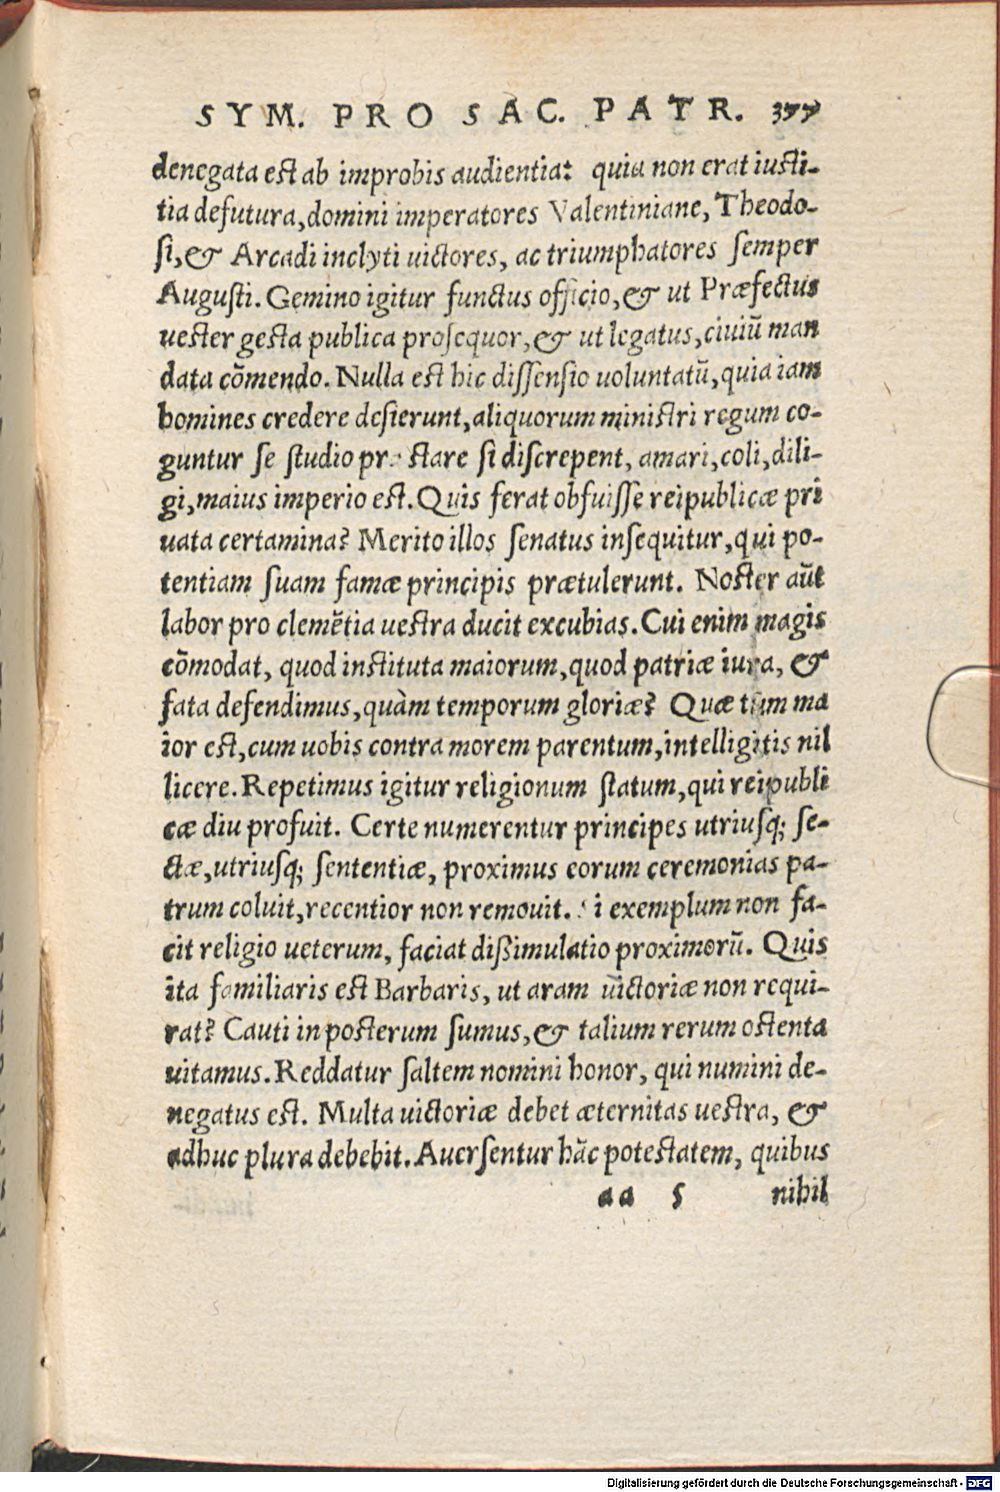 SYM. PRO SAC. PATR. 377
denegata est ab improbis audientia: quia non erat iusti-
tia defutura, domini imperatores Valentiniane, Theodo-
si, & Arcadi inclyti uictores, ac triumphatores semper
Augusti. Gemino igitur functus officio, & ut Præfectus
uester gesta publica prosequor, & ut legatus, ciuiũ man
data cõmendo. Nulla est hic dissensio uoluntatũ, quia iam
homines credere desierunt, aliquorum ministri regum co-
guntur se studio pr stare si discrepent, amari, coli, dili-
gi, maius imperio est. Quis ferat obfuisse reipublicæ pri
uata certamina? Merito illos senatus insequitur, qui po-
tentiam suam famæ principis prætulerunt. Noster aũt
labor pro clemẽtia uestra ducit excubias. Cui enim magis
cõmodat, quod instituta maiorum, quod patriæ iura, &
fata defendimus, quàm temporum gloriæ? Quæ tum ma
ior est, cum uobis contra morem parentum, intelligitis nil
licere. Repetimus igitur religionum statum, qui reipubli
cæ diu profuit. Certe numerentur principes utriusq; se-
ctæ, utriusq; sententiæ, proximus eorum ceremonias pa-
trum coluit, recentior non remouit. i exemplum non fa-
cit religio ueterum, faciat dißimulatio proximorũ. Quis
ita familiaris est Barbaris, ut aram uictoriæ non requi-
rat? Cauti in posterum sumus, & talium rerum ostenta
uitamus. Reddatur saltem nomini honor, qui numini de-
negatus est. Multa uictoriæ debet æternitas uestra, &
adhuc plura debebit. Auersentur hãc potestatem, quibus
aa 5 nihil
Digitalisierung gefördert durch die Deutsche Forschungsgemeinschaft - DFG